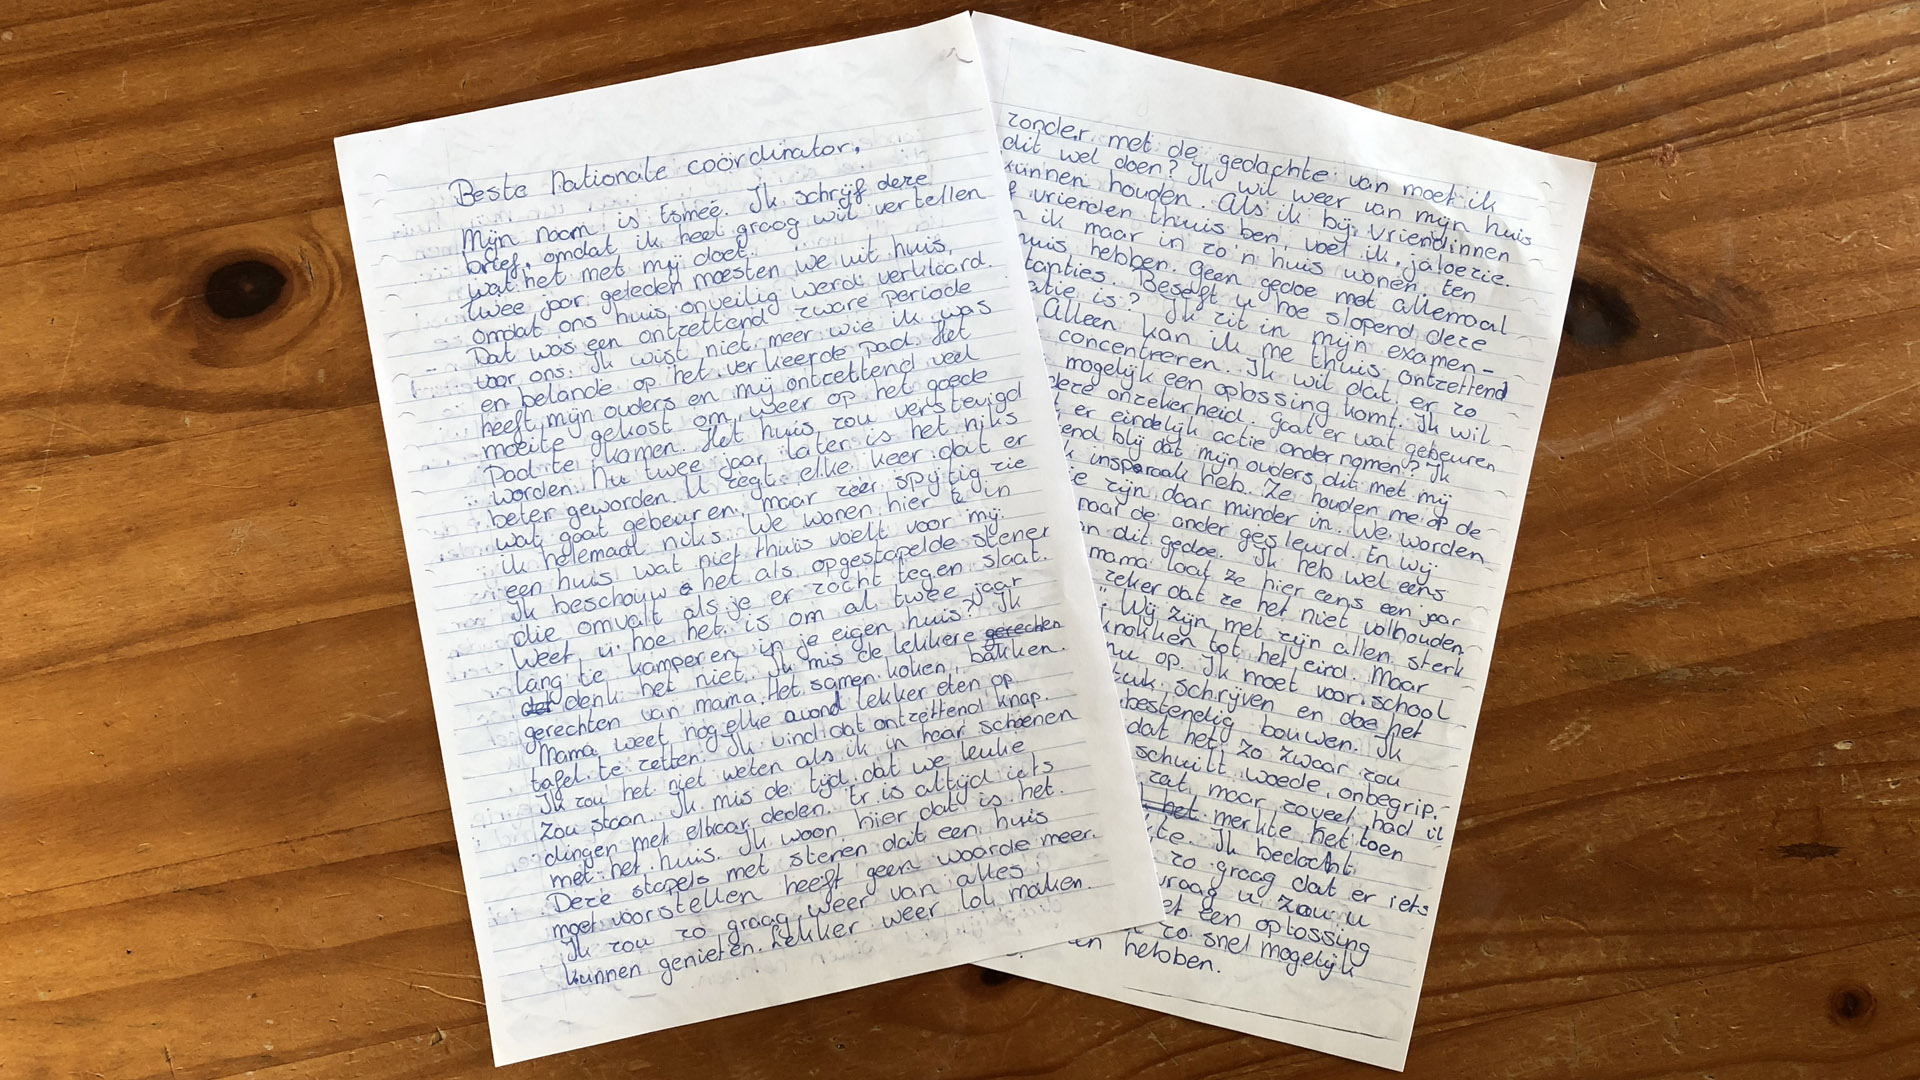 Beste Nationale coördinator,
Mijn naam is Esmeé. Ik schrijf deze
brief, omdat ik heel graag wil vertellen
wat het met mij doet.
Twee jaar geleden moesten we uit huis,
omdat ons huis onveilig werd verklaard.
Dat was een ontzettend zware periode
voor ons. Ik wist niet meer wie ik was
en belande op het verkeerde pad. Het
heeft mijn ouders en mij ontzettend veel
moeite gekost om weer op het goede
Pad te komen. Het huis zou verstevigd
worden. Nu twee jaar later is het niks
beter geworden. U zegt elke keer dat er
wat gaat gebeuren, maar zeer spijtig zie
ik helemaal niks. We wonen hier in
een huis wat niet thuis voelt voor mij.
Ik beschouw het als opgestapelde stener
die omvalt als je er zacht tegen slaat.
Weet u hoe het is om al twee jaar
lang te kamperen in je eigen huis? Ik
denk het niet. Ik mis de lekkere gerechen
gerechten van mama. Het samen koken, bakken.
Mama weet nog elke avond lekker eten op
tafel te zetten. Ik vind dat ontzettend knap.
Ik zou het niet weten als ik in haar schoenen
zou staan. Ik mis de tijd dat we leuke
dingen met elkaar deden. Er is altijd iets
met het huis. Ik woon hier dat is het.
Deze stapels met stenen dat een huis
moet voorstellen heeft geen waarde meer.
Ik zou zo graag weer van alles
kunnen genieten. Lekker weer lol maken.
zonder met de gedachte van moet ik
dit wel doen? Ik wil weer van mijn huis
kunnen houden. Als ik bij vriendinnen
vrienden thuis ben, voel ik jaloezie.
ik maar in zo'n huis wonen. Een
huis hebben. Geen gedoe met allemaal
tanties. Beseft u hoe slopend deze
atie is? Ik zit in mijn examen-
Alleen kan ik me thuis ontzettend
concentreren. Ik wil dat er zo
mogelijk een oplossing komt. Ik wil
deze onzekerheid. Gaat er wat gebeuren
er eindelijk actie ondernomen? Ik
end blij dat mijn ouders dit met mij
insparaak heb. Ze houden me op de
zijn daar minder in. We worden
naar de ander gesleurd. En wij
dit gedoe. Ik heb wel eens
mama laat ze hier eens een jaar
zeker dat ze het niet volhouden
Wij zijn met zijn allen sterk
knokken tot het eind. Maar
nu op. Ik moet voor school
tuk schrijven en doe het
bestendig bouwen. Ik
dat het zo zwaar zou
schuilt woede, onbegrip.
zat, maar zoveel had ik
het merkte het toen
te. Ik bedacht
zo graag dat er iets
vraag u, zou u
een oplossing
zo snel mogelijk
hebben.